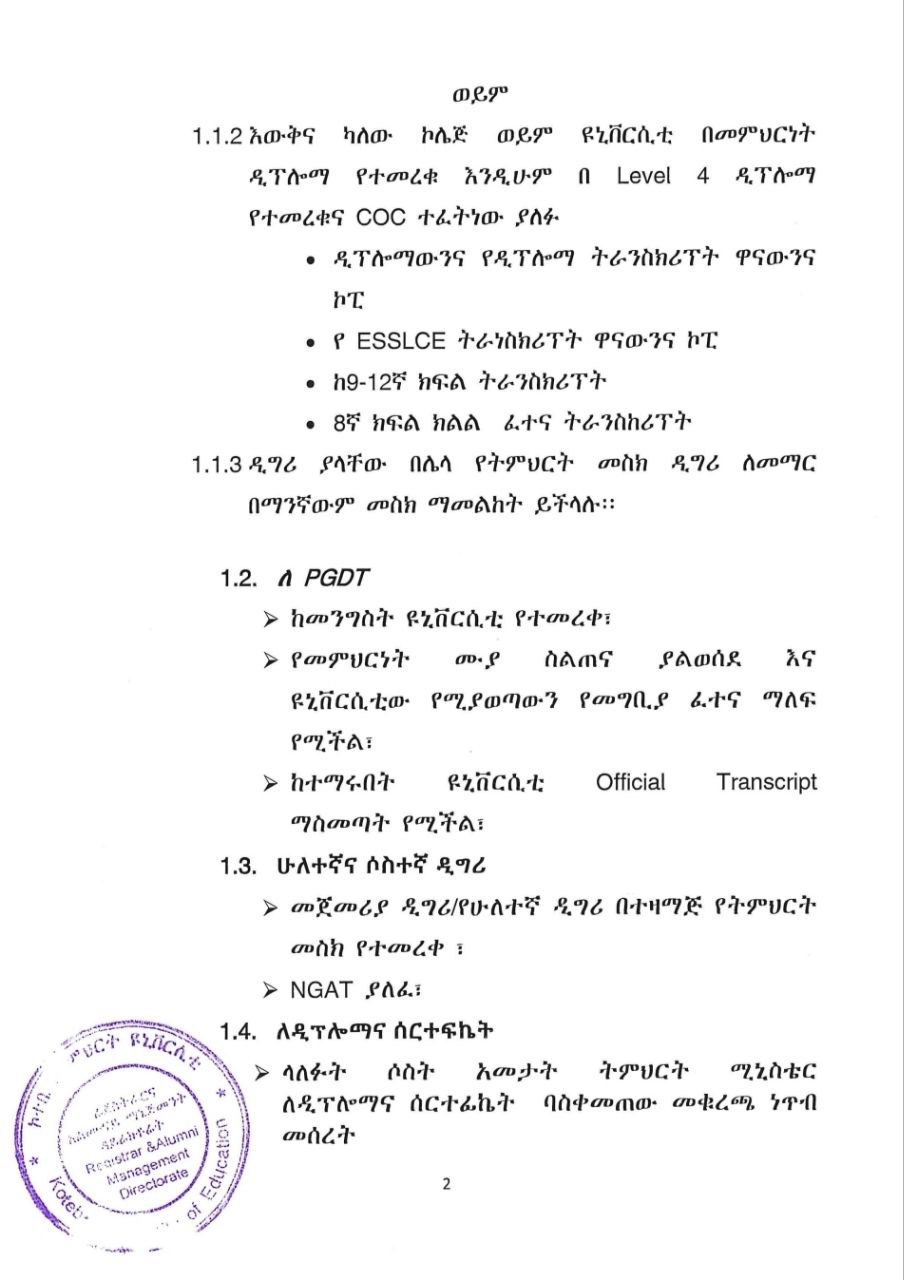 ወይም
1.1.2 እውቅና ካለው ኮሌጅ ወይም ዩኒቨርሲቲ በመምህርነት
ዲፕሎማ የተመረቁ እንዲሁም በ Level 4 ዲፕሎማ
የተመረቁና COC ተፈትነው ያለፉ
• ዲፕሎማውንና የዲፕሎማ ትራንስክሪፕት ዋናውንና
ኮፒ
• የ ESSLCE ትራነስክሪፕት ዋናውንና ኮፒ
• ከ9-12ኛ ክፍል ትራንስክሪፕት
• 8ኛ ክፍል ክልል ፈተና ትራንስከሪፕት
1.1.3 ዲግሪ ያላቸው በሌላ የትምህርት መስክ ዲግሪ ለመማር
በማንኛውም መስክ ማመልከት ይችላሉ፡፡
1.2. ለ PGDT
➢ ከመንግስት ዩኒቨርሲቲ የተመረቀ፣
➢ የመምህርነት ሙያ ስልጠና ያልወሰደ እና
ዩኒቨርሲቲው የሚያወጣውን የመግቢያ ፈተና ማለፍ
የሚችል፣
➢ ከተማሩበት ዩኒቨርሲቲ Official Transcript
ማስመጣት የሚችል፣
1.3. ሁለተኛና ሶስተኛ ዲግሪ
➢ መጀመሪያ ዲግሪ/የሁለተኛ ዲግሪ በተዛማጅ የትምህርት
መስክ የተመረቀ ፣
➢ NGAT ያለፈ፣
1.4. ለዲፕሎማና ሰርተፍኬት
➢ ላለፉት ሶስት አመታት ትምህርት ሚኒስቴር
ለዲፕሎማና ሰርተፊኬት ባስቀመጠው መቁረጫ ነጥብ
መሰረት
ዩኒቨርሲቲ
Registrar &Alumni
Management
Directorate
of Education
2